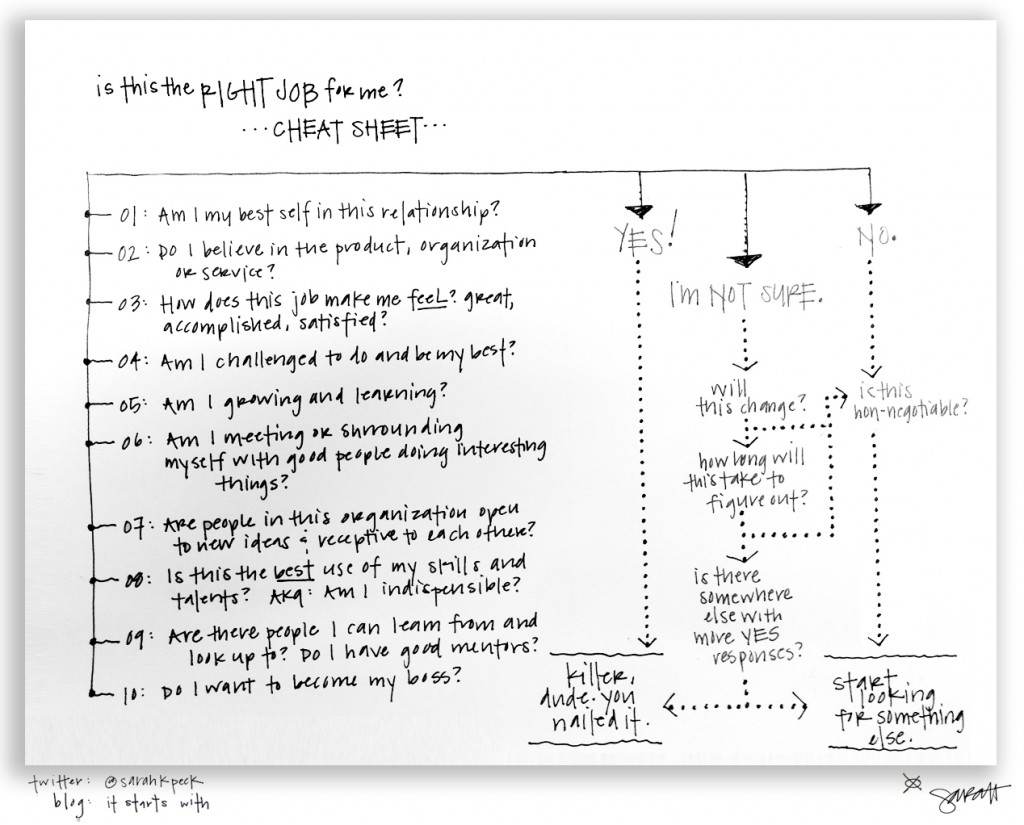 is this the RIGHT JOB for me?
...CHEAT SHEET...
01: Am I my best self in this relationship?
02: Do I believe in the product, organization
or service?
03: How does this job make me feel? great,
accomplished, satisfied?
04: Am I challenged to do and be my best?
05: Am I growing and learning?
06: Am I meeting or surrounding
myself with good people doing interesting
things?
07: Are people in this organization open
to new ideas & receptive to each other?
08: Is this the best use of my skills and
talents? AKA: Am I indispensible?
09: Are there people I can learn from and
look up to? Do I have good mentors?
10: Do I want to become my boss?
YES!
I'm NOT SURE.
NO.
will
this change?
how long will
this take to
figure out?
is there
somewhere
else with
more YES
responses?
is this
non-negotiable?
killer,
dude. you
nailed it.
start
looking
for something
else.
twitter: @sarahkpeck
blog: it starts with
Sarah